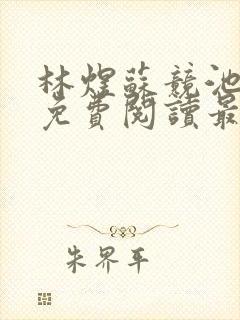 林煜蘇競池
免費閱讀最
朱界平